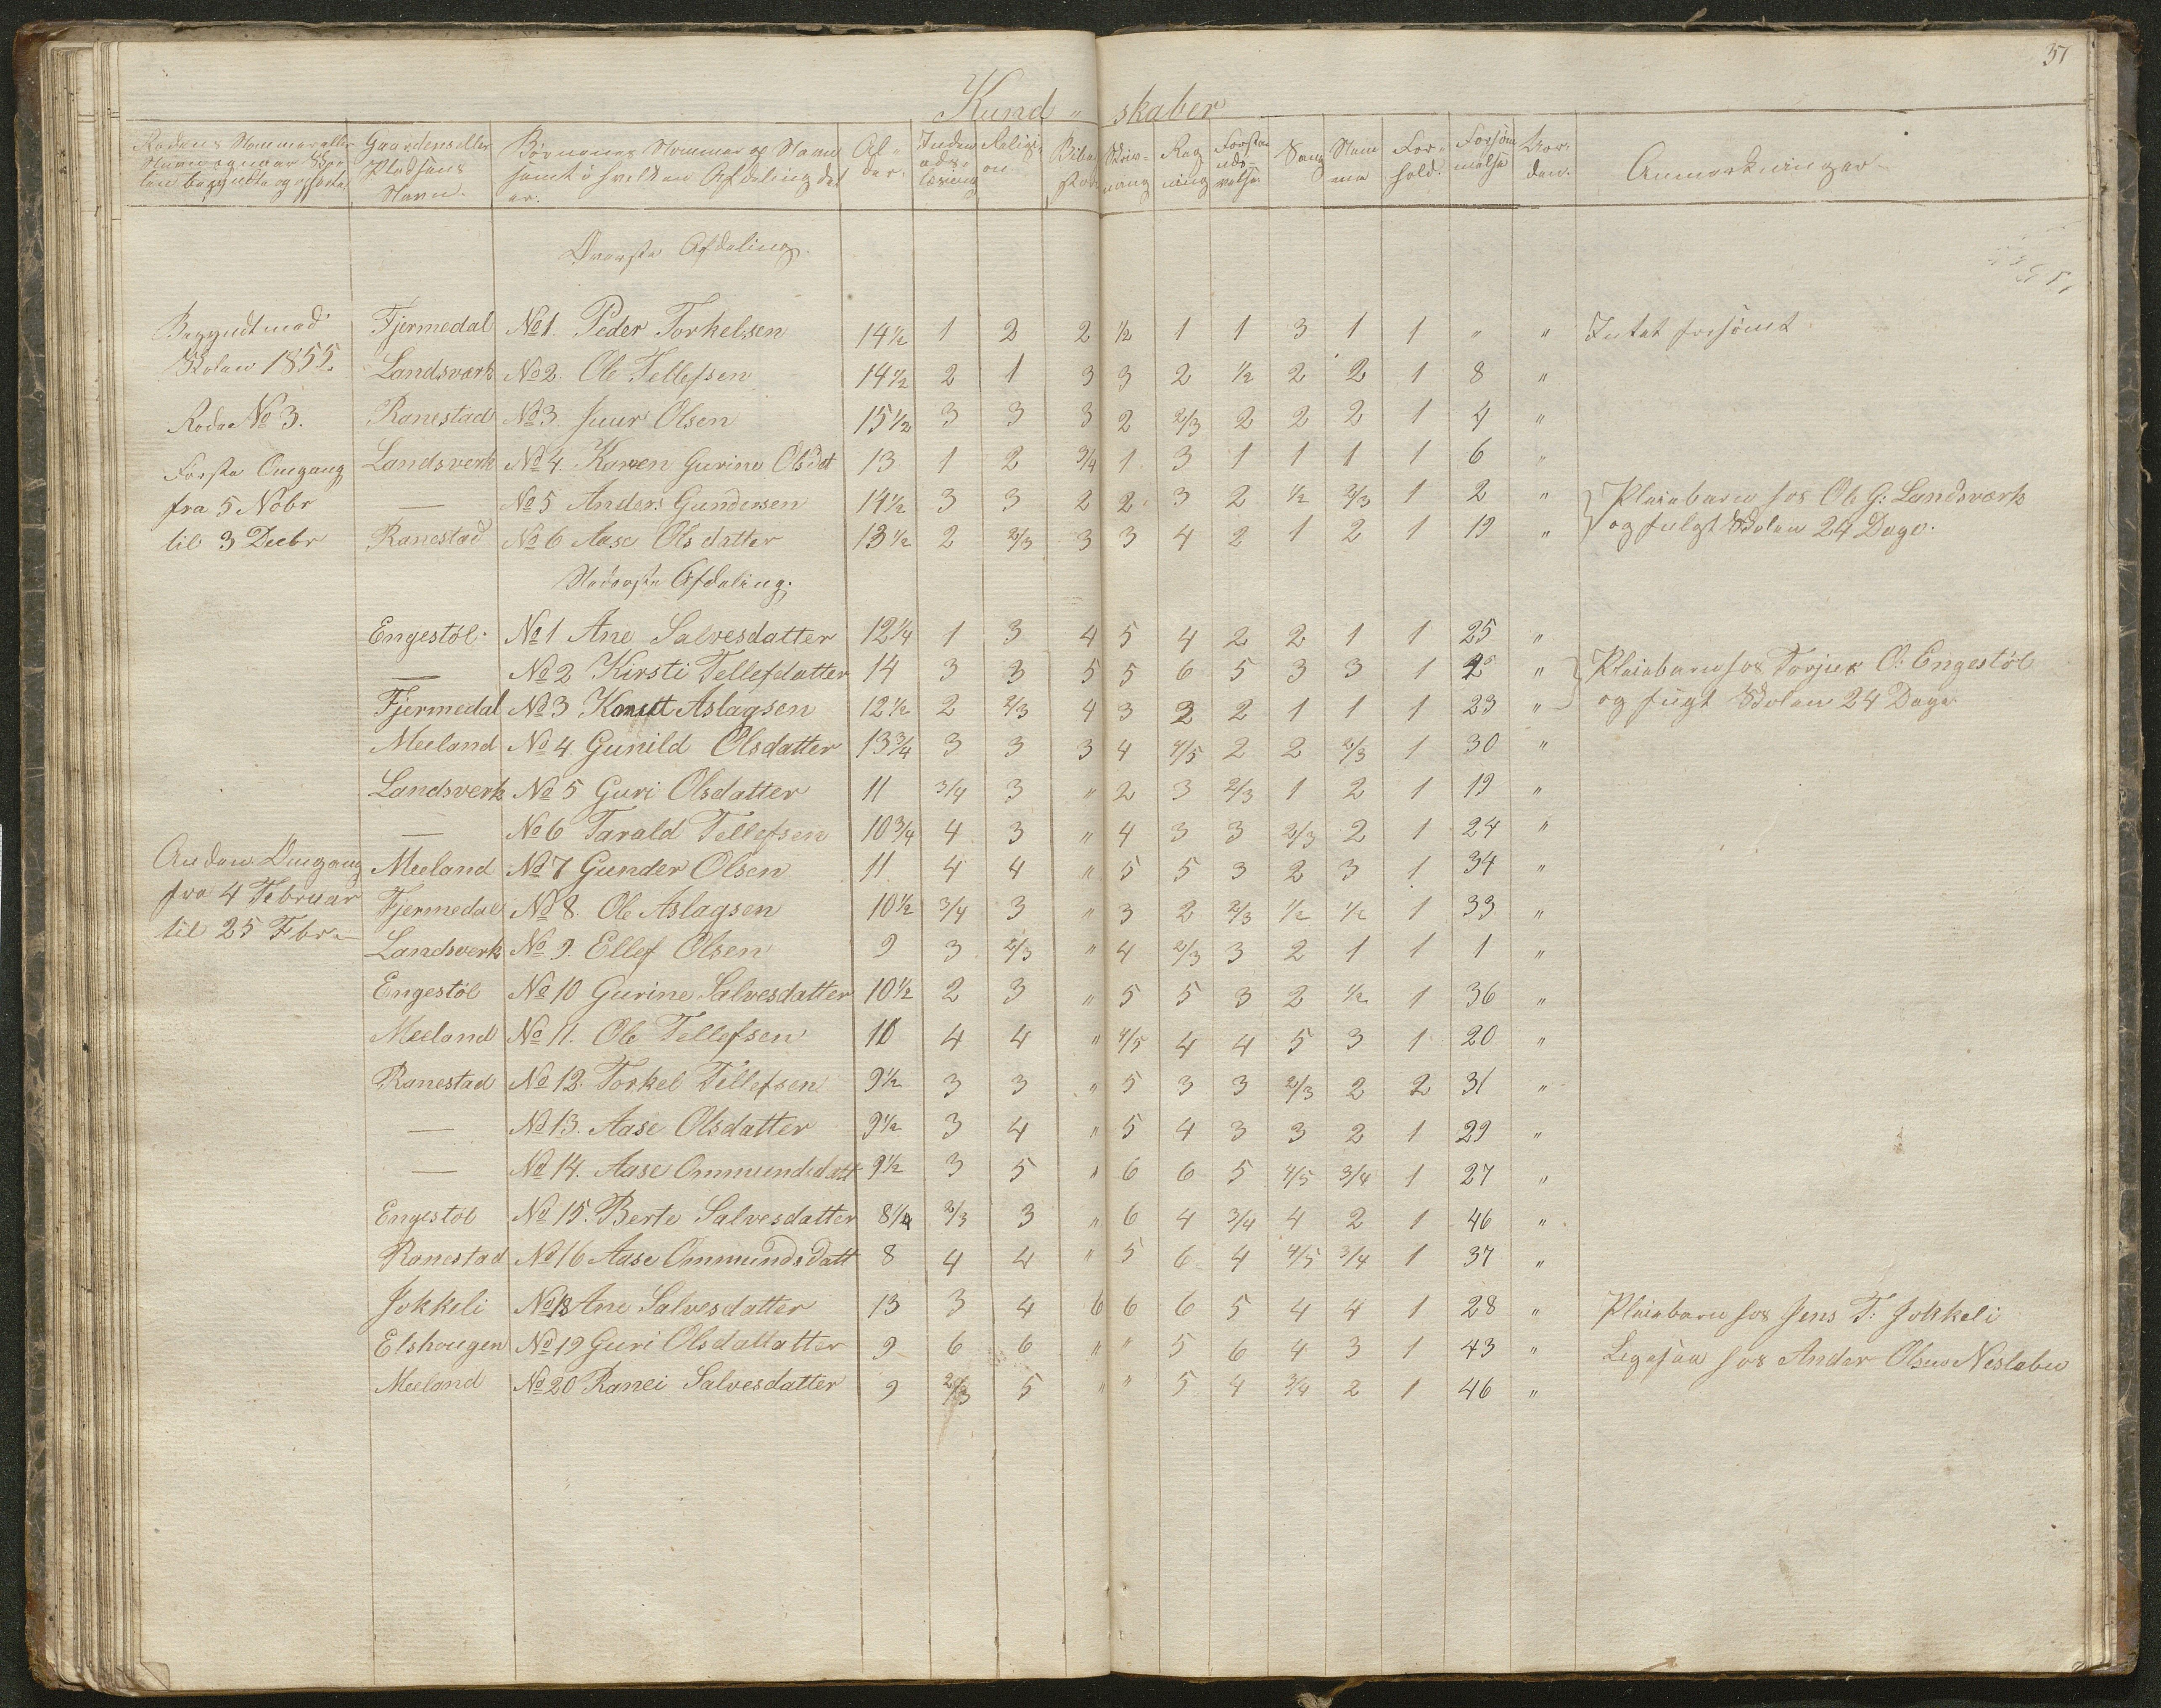 37
Kund " skaber
Rodens Nommer eller Navn og naar Skolen begyndte og opførte
Gaardens eller Pladsens Navn.
Børnenes Nommer og Navn samt i hvilken Afdeling det er.
Alder.
Inden adslæsning
Religion
Skrivning
Regning
Forstandsøvelse
Sang
Nemme
Forhold.
Forsømmelse
Anmærkninger
Øverste Afdeling.
Begyndt med Fjermedal No 1. Peder Torkelsen 14½ 1 2 2 ½ 1 1 3 1 1 " " Intet forsömt.
Skolen 1855. Landsværk No 2. Ole Tellefsen 14½ 2 1 3 3 2 ½ 2 2 1 8 "
Rode No 3. Ranestad No 3. Juur Olsen 15½ 3 3 3 2 2/3 2 2 2 1 4 "
Første Omgang Landsverk No 4. Karen Gurine Olsdat 13 1 2 3/4 1 3 1 1 1 1 6 "
fra 5 Nobr — No 5 Anders Gundersen 14½ 3 3 2 2 3 2 ½ 2/3 1 2 " Pleiebarn hos Ole G: Landsværk
til 3 Decbr Ranestad No 6 Aase Olsdatter 13½ 2 2/3 3 3 4 2 1 2 1 19 " og fulgt Skolen 24 Dage.
Nederste Afdeling.
Engestöl. No 1 Ane Salvesdatter 12¼ 1 3 4 5 4 2 2 1 1 25 "
— No 2 Kirsti Tellefdatter 14 3 3 5 5 6 5 3 3 1 " Pleiebarn hos Torjus O: Engestöl
Fjermedal No 3 Knutt Aslagsen 12½ 2 2/3 4 3 2 2 1 1 1 23 " og fugt Skolen 24 Dage
Meeland No 4 Gunild Olsdatter 13¾ 3 3 3 4 4/5 2 2 2/3 1 30 "
Landsverk No 5 Guri Olsdatter 11 3/4 3 " 2 3 2/3 1 2 1 19 "
— No 6 Tarald Tellefsen 10¾ 4 3 " 4 3 3 2/3 2 1 24 "
Anden Omgang Meeland No 7 Gunder Olsen 11 4 4 " 5 5 3 2 3 1 34 "
fra 4 Februar Fjermedal No 8. Ole Aslagsen 10½ 3/4 3 " 3 2 2/3 ½ ½ 1 33 "
til 25 Fbr. Landsverk No 9. Ellef Olsen 9 3 2/3 " 4 2/3 3 2 1 1 1 "
Engestöl No 10 Gurine Salvesdatter 10½ 2 3 " 5 5 3 2 ½ 1 36 "
Meeland No 11. Ole Tellefsen 10 4 4 " 4/5 4 4 5 3 1 20 "
Ranestad No 12. Torkel Tellefsen 9½ 3 3 " 5 3 3 2/3 2 2 31 "
— No 13. Aase Olsdatter 9½ 3 4 " 5 4 3 3 2 1 29 "
— No 14. Aase Ommundsdatt 9½ 3 5 " 6 6 5 4/5 3/4 1 27 "
Engestöl No 15. Berte Salvesdatter 8¼ 2/3 3 " 6 4 3/4 4 2 1 46 "
Ranestad No 16 Aase Ommundsdatt 8 4 4 " 5 6 4 4/5 3/4 1 37 "
Jokkeli No 18 Ane Salvesdatter 13 3 4 6 6 6 5 4 4 1 28 " Pleiebarn hos Jens T: Jokkeli
Elshougen No 19 Guri Olsdallatter 9 6 6 " " 5 6 4 3 1 43 " Ligesaa hos Ander Olsen Neslabu
Meeland No 20 Ranei Salvesdatter 9 2/3 5 " " 5 4 3/4 2 1 46 "